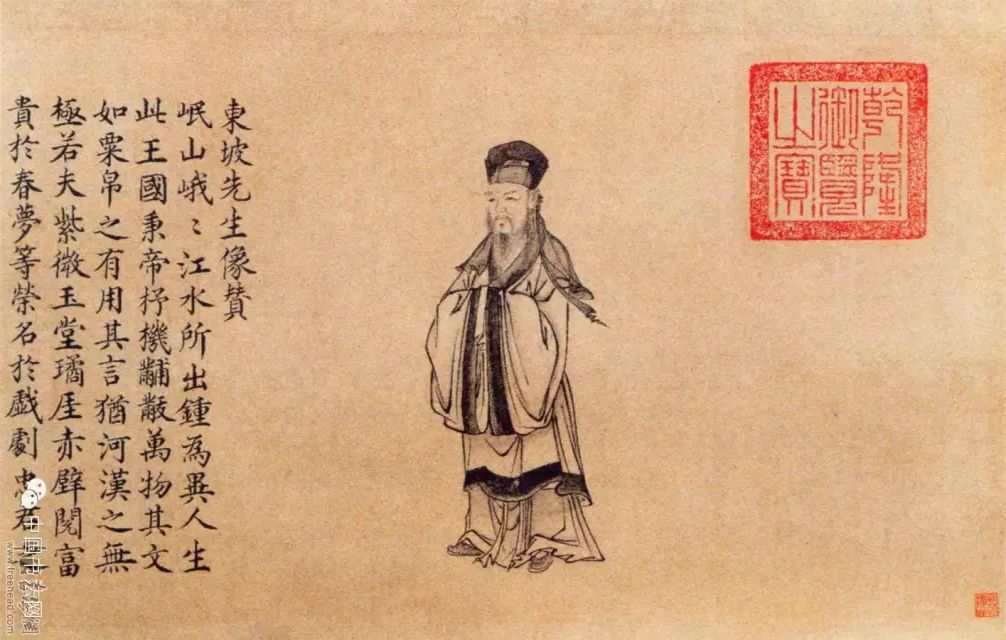 乾隆
御覽
之寶
東坡先生像賛
岷山峨〻江水所出鍾為異人生
此王國秉帝杼機黼黻萬物其文
如粟帛之有用其言猶河漢之無
極若夫紫微玉堂璚厓赤壁閱富
貴於春夢等榮名於戲劇忠君
www.freehead.com